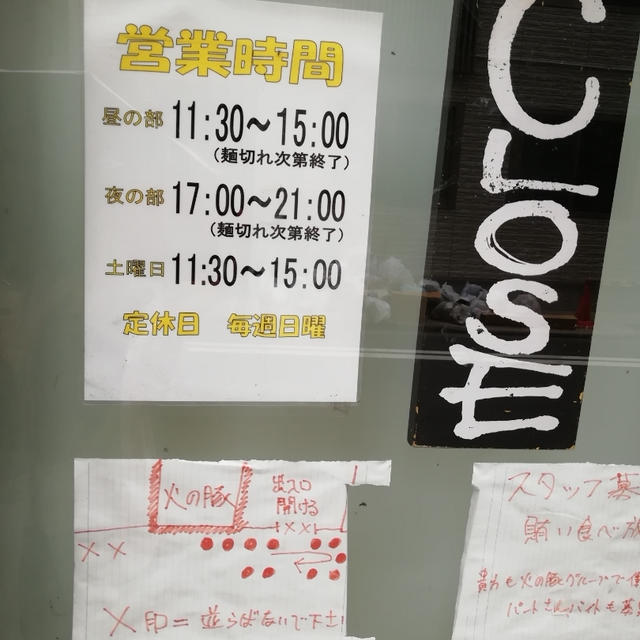 営業時間
昼の部 11:30〜15:00
(麺切れ次第終了)
夜の部 17:00〜21:00
(麺切れ次第終了)
土曜日 11:30〜15:00
定休日 毎週日曜
CLOSE
火の豚
出入口
開ける
××
××
×印=並らばないで下さ
スタッフ募
賄い食べ放